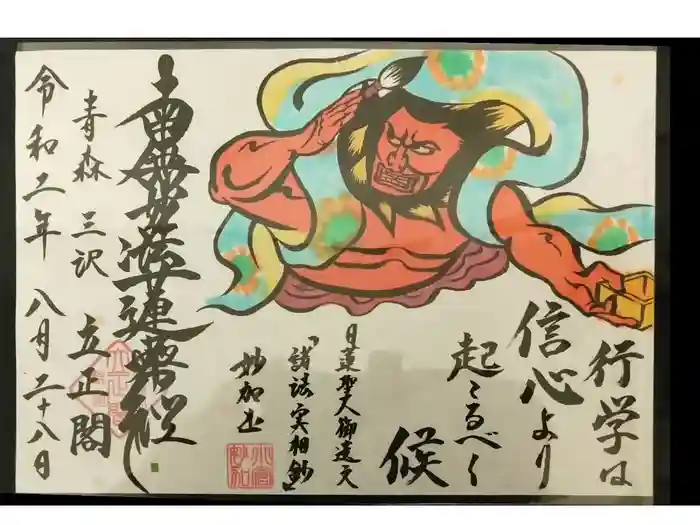 行学は
信心より
起こるべく
候
日蓮聖人御遺文
『諸法実相鈔』
妙加
南無妙法蓮華経
青森 三沢 立正閣
令和二年 八月二十八日